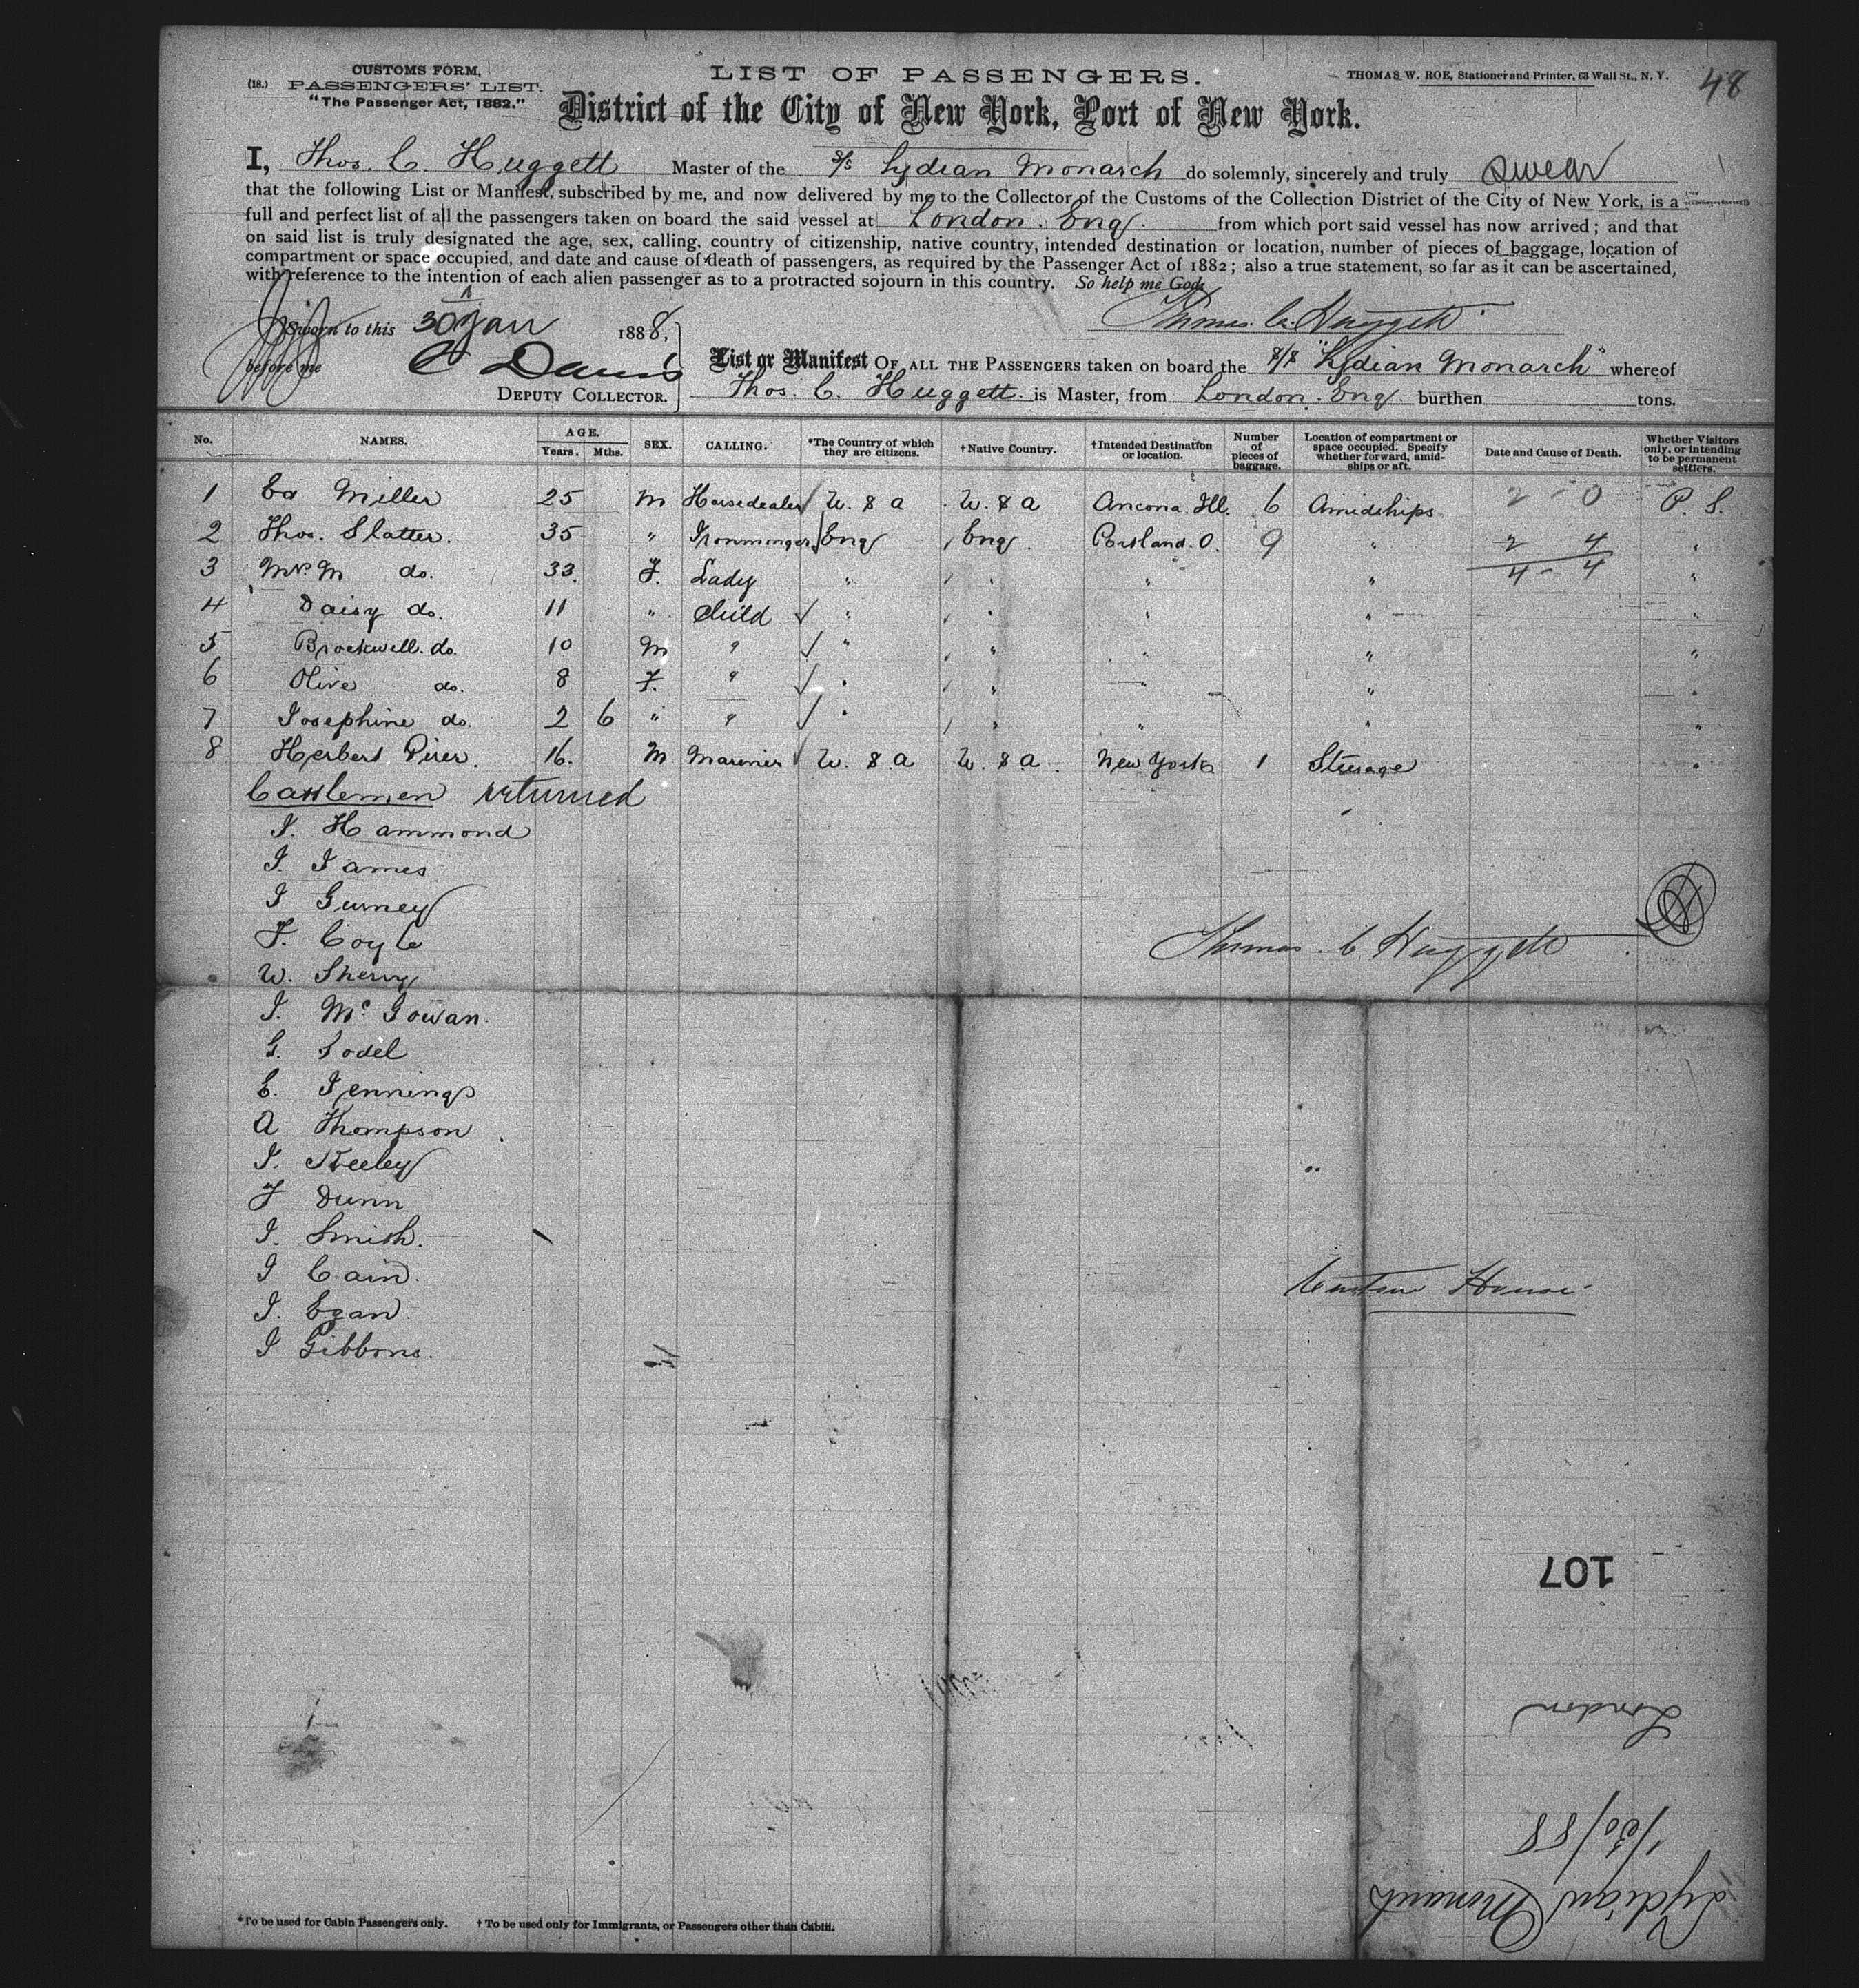 CUSTOMS FORM,
(18.) PASSENGERS' LIST.
"The Passenger Act, 1882."
LIST OF PASSENGERS.
THOMAS W. ROE, Stationer and Printer, 63 Wall St., N. Y.
48
District of the City of New York, Port of New York.
I, Thos. C. Huggett Master of the S/s Lydian Monarch do solemnly, sincerely and truly swear
that the following List or Manifest, subscribed by me, and now delivered by me to the Collector of the Customs of the Collection District of the City of New York, is a
full and perfect list of all the passengers taken on board the said vessel at London. Eng. from which port said vessel has now arrived; and that
on said list is truly designated the age, sex, calling, country of citizenship, native country, intended destination or location, number of pieces of baggage, location of
compartment or space occupied, and date and cause of death of passengers, as required by the Passenger Act of 1882; also a true statement, so far as it can be ascertained,
with reference to the intention of each alien passenger as to a protracted sojourn in this country. So help me God.
Thomas. C. Huggett
Sworn to this 30 Jan 1888,
before me C Davis
DEPUTY COLLECTOR.
List or Manifest OF ALL THE PASSENGERS taken on board the S/S "Lydian Monarch" whereof
Thos. C. Huggett. is Master, from London. Eng. burthen tons.
No. NAMES. AGE. Years. Mths. SEX. CALLING. *The Country of which they are citizens. †Native Country. †Intended Destination or location. Number of pieces of baggage. Location of compartment or space occupied. Specify whether forward, amidships or aft. Date and Cause of Death. Whether Visitors only, or intending to be permanent settlers.
1 Ed Miller 25 M Horsedealer U. S a U. S a Ancona. Ill. 6 Amidships 2 - 0 P. S.
2 Thos. Slatter. 35 " Ironmonger Eng Eng. Portland. O. 9 " 2 4 "
3 Mrs. M do. 33. F. Lady " " " " 4 - 4 "
4 Daisy do. 11 " Child " " " " "
5 Brockwell. do. 10 M " " " " " "
6 Olive do. 8 F. " " " " " "
7 Josephine do. 2 6 " " " " " " "
8 Herbert 16. M Mariner U. S. a U. S a. New York 1 Steerage "
Cattlemen returned
J. Hammond
J. James
J Gurney
F. Coyle
W. Sherry
J. McGowan.
G.
E. Jennings
A Thompson
J. Keeley
F Dunn
J. Smith.
J Cain.
J. Egan.
J Gibbons.
Thomas. C. Huggett
Custom House
107
London
1/30/88
Lydian Monarch
*To be used for Cabin Passengers only. †To be used only for Immigrants, or Passengers other than Cabin.